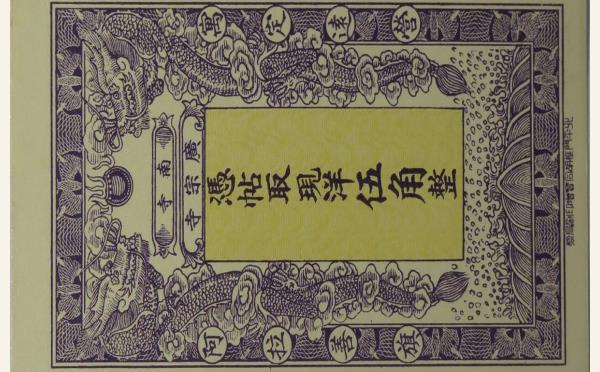 南寺
廣宗寺
寓定遠營
憑帖取現洋伍角整
阿拉善旗